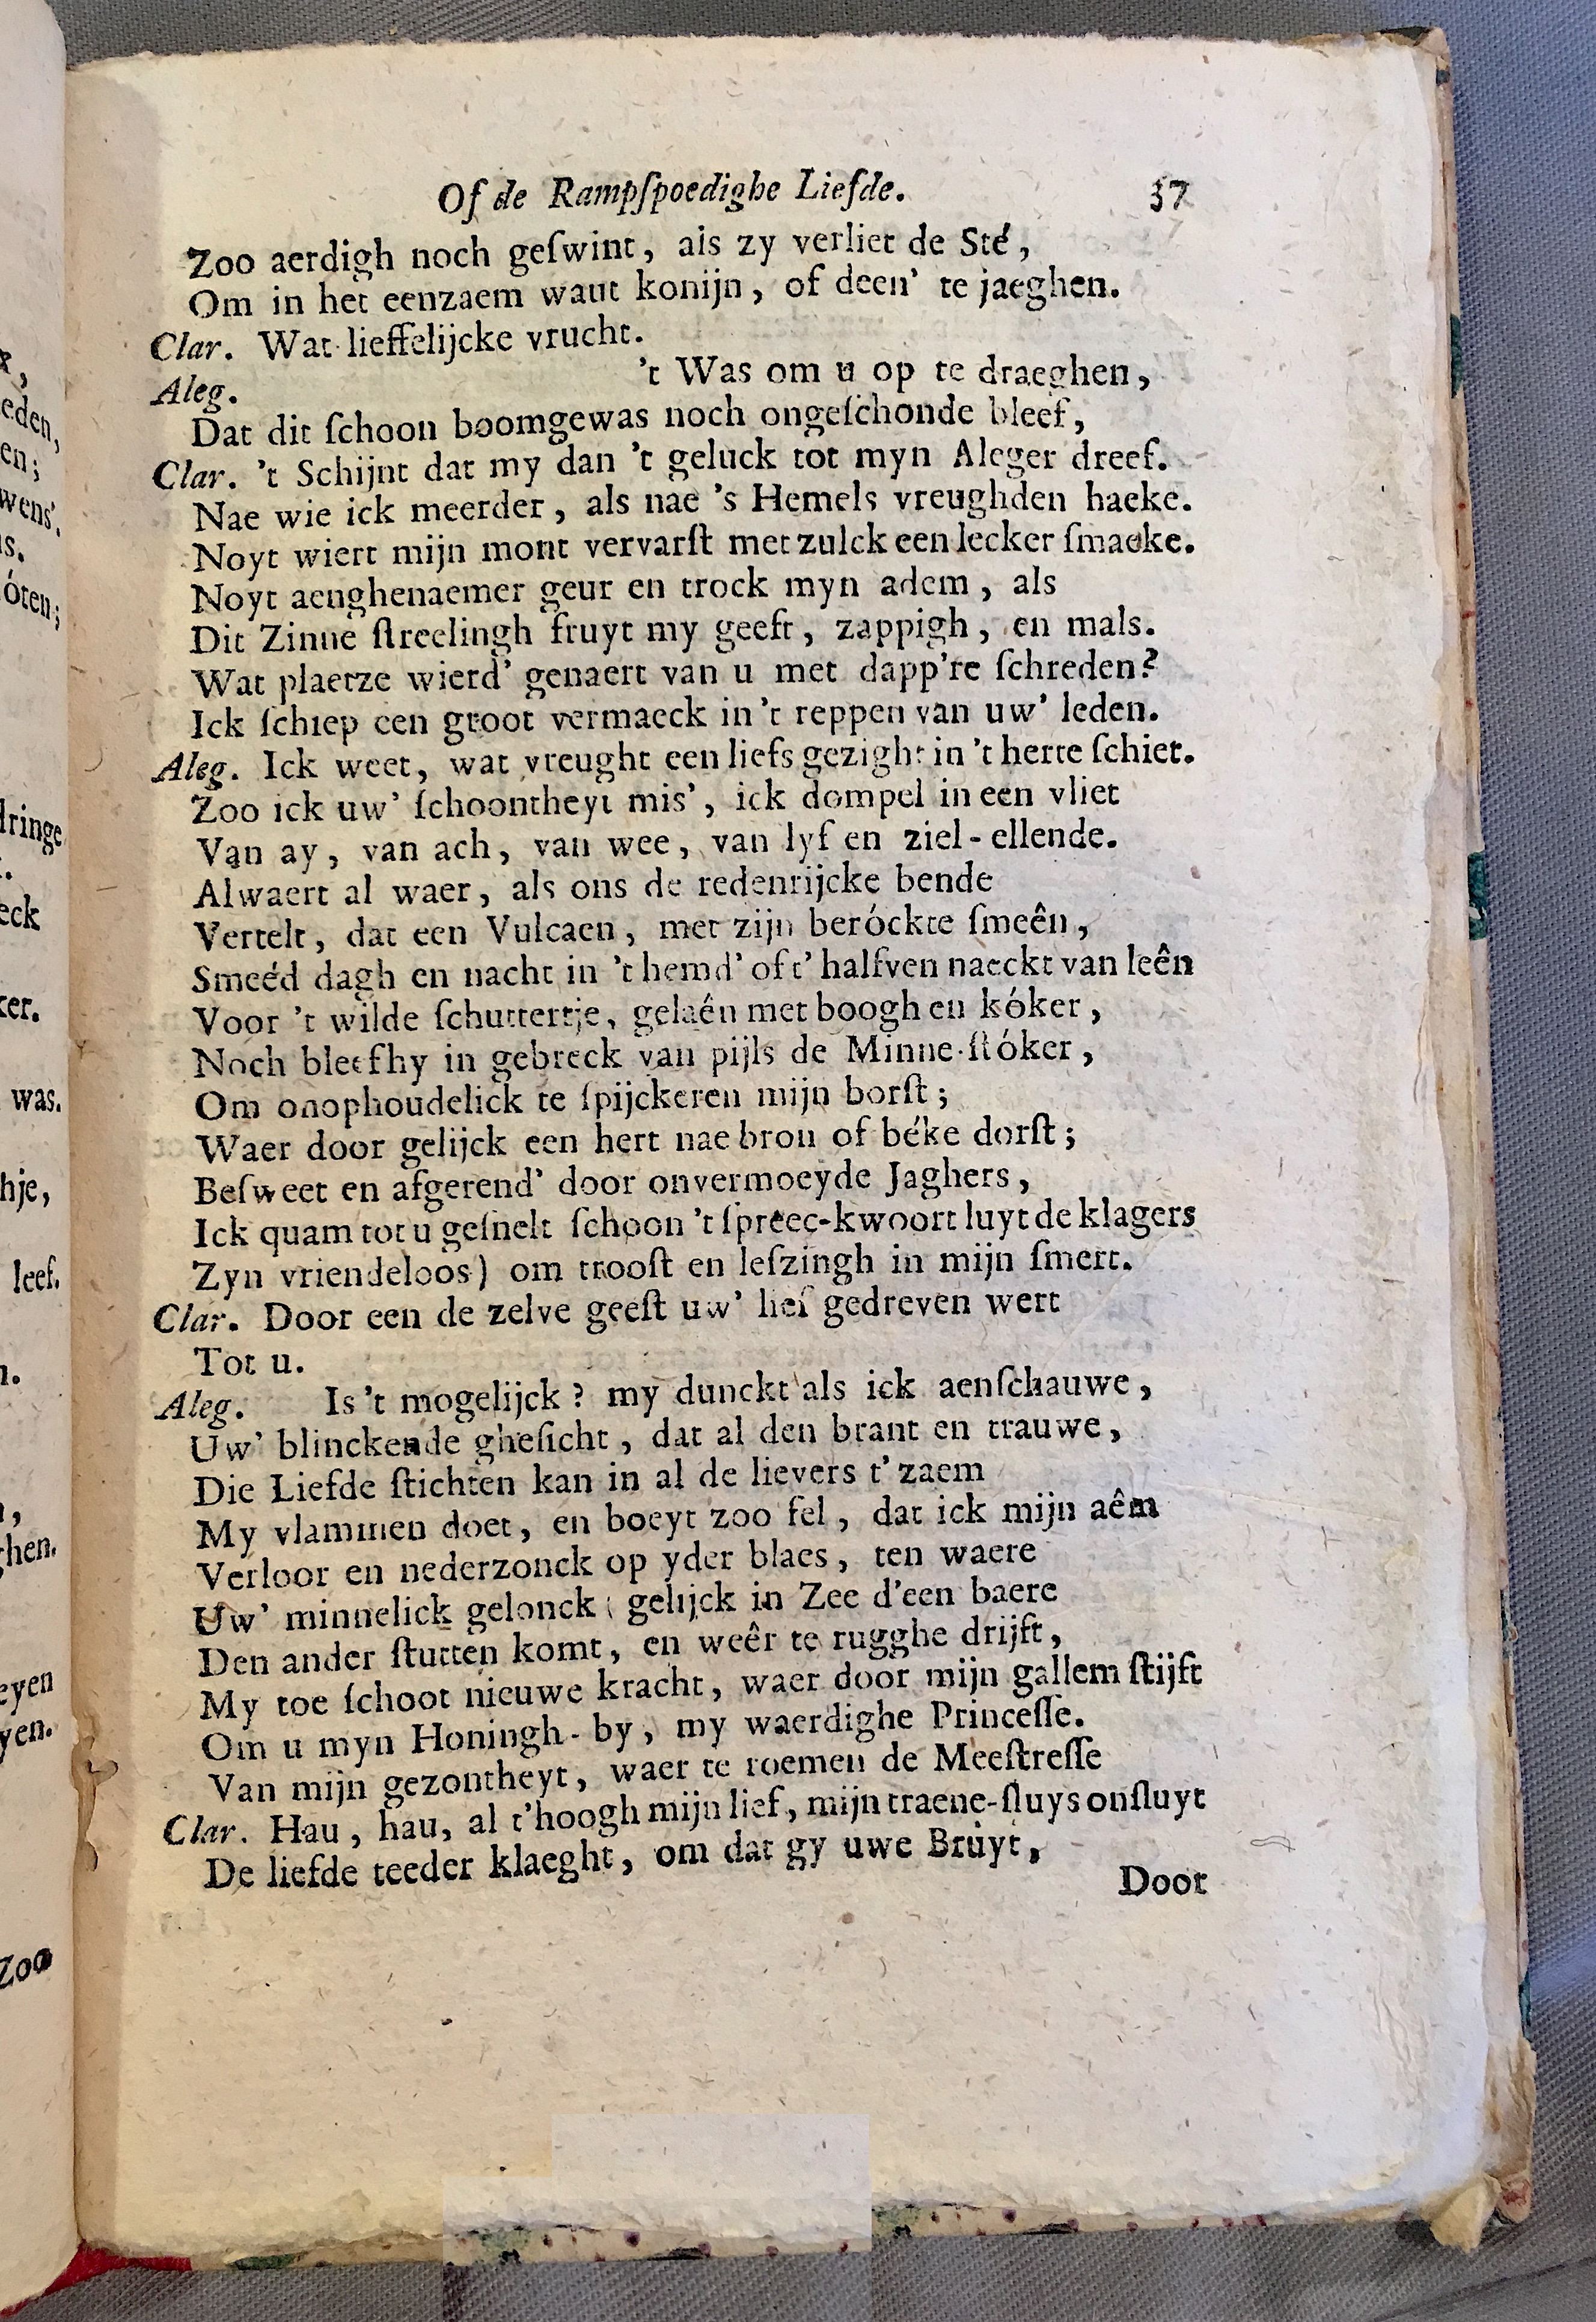 Of de Rampſpoedighe Liefde. 37
Zoo aerdigh noch geſwint, als zy verliet de Sté,
Om in het eenzaem waut konijn, of deen' te jaeghen.
Clar. Wat lieffelijcke vrucht.
't Was om u op te draeghen,
Aleg.
Dat dit ſchoon boomgewas noch ongeſchonde bleef,
Clar. 't Schijnt dat my dan 't geluck tot myn Aleger dreef.
Nae wie ick meerder, als nae 's Hemels vreughden haeke.
Noyt wiert mijn mont vervarſt met zulck een lecker ſmaeke.
Noyt aenghenaemer geur en trock myn adem, als
Dit Zinne ſtreelingh fruyt my geeft, zappigh, en mals.
Wat plaetze wierd' genaert van u met dapp're ſchreden?
Ick ſchiep een groot vermaeck in 't reppen van uw' leden.
Aleg. Ick weet, wat vreught een liefs gezight in 't herte ſchiet.
Zoo ick uw' ſchoontheyt mis', ick dompel in een vliet
Van ay, van ach, van wee, van lyf en ziel-ellende.
Alwaert al waer, als ons de redenrijcke bende
Vertelt, dat een Vulcaen, met zijn beróckte ſmeên,
Smeéd dagh en nacht in 't hemd' of t' halfven naeckt van leên
Voor 't wilde ſchuttertje, gelaén met boogh en kóker,
Noch bleef hy in gebreck van pijls de Minne-ſtóker,
Om onophoudelick te ſpijckeren mijn borſt;
Waer door gelijck een hert nae bron of béke dorſt;
Beſweet en afgerend' door onvermoeyde Jaghers,
Ick quam tot u geſnelt ſchoon 't ſpreec-kwoort luyt de klagers
Zyn vriendeloos) om trooſt en leſzingh in mijn ſmert.
Clar. Door een de zelve geeſt uw' lief gedreven wert
Tot u.
Aleg. Is 't mogelijck? my dunckt als ick aenſchauwe,
Uw' blinckende gheſicht, dat al den brant en trauwe,
Die Liefde ſtichten kan in al de lievers t'zaem
My vlammen doet, en boeyt zoo fel, dat ick mijn aêm
Verloor en nederzonck op yder blaes, ten waere
Uw' minnelick gelonck ( gelijck in Zee d'een baere
Den ander ſtutten komt, en weêr te rugghe drijft,
My toe ſchoot nieuwe kracht, waer door mijn gallem ſtijft
Om u myn Honingh-by, my waerdighe Princeſſe.
Van mijn gezontheyt, waer te roemen de Meeſtreſſe
Clar. Hau, hau, al t'hoogh mijn lief, mijn traene-ſluys onſluyt
De liefde teeder klaeght, om dat gy uwe Bruyt,
Door